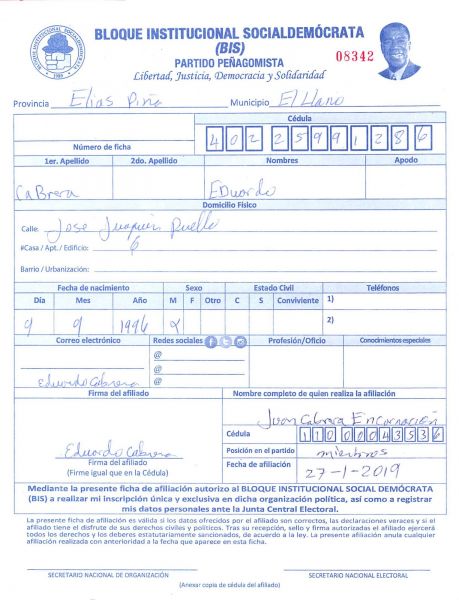 BLOQUE INSTITUCIONAL SOCIALDEMÓCRATA
(BIS)
PARTIDO PEÑAGOMISTA
Libertad, Justicia, Democracia y Solidaridad
08342
Provincia Elias Piña Municipio El Llano
Cédula
Número de ficha 40225991286
1er. Apellido 2do. Apellido Nombres Apodo
CaBrera EDuardo
Domicilio Físico
Calle: Jose Juaquin Puello
#Casa / Apt. / Edificio: 6
Barrio / Urbanización:
Fecha de nacimiento Sexo Estado Civil Teléfonos
Día Mes Año M F Otro C S Conviviente 1)
9 9 1996 X 2)
Correo electrónico Redes sociales Profesión/Oficio Conocimientos especiales
@
@
Eduardo Cabrera @
Firma del afiliado Nombre completo de quien realiza la afiliación
Juan Cabrera Encarnación
Cédula 11000043536
Eduardo Cabrera Posición en el partido miembros
Firma del afiliado Fecha de afiliación 27-1-2019
(Firme igual que en la Cédula)
Mediante la presente ficha de afiliación autorizo al BLOQUE INSTITUCIONAL SOCIAL DEMÓCRATA
(BIS) a realizar mi inscripción única y exclusiva en dicha organización política, así como a registrar
mis datos personales ante la Junta Central Electoral.
La presente ficha de afiliación es válida si los datos ofrecidos por el afiliado son correctos, las declaraciones veraces y si el
afiliado tiene el disfrute de sus derechos civiles y políticos. Tras su recepción, sello y firma autorizadas el afiliado ejercerá
todos los derechos y los deberes estatutariamente sancionados, de acuerdo a la ley. La presente afiliación anula cualquier
afiliación realizada con anterioridad a la fecha que aparece en esta ficha.
SECRETARIO NACIONAL DE ORGANIZACIÓN SECRETARIO NACIONAL ELECTORAL
(Anexar copia de cédula del afiliado)